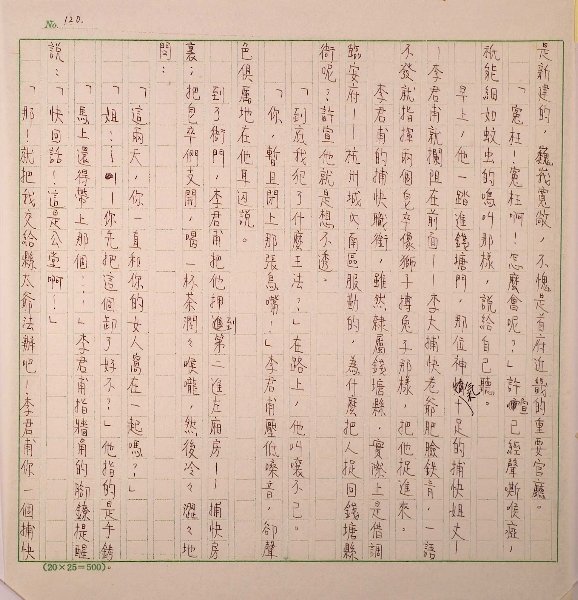 No. 120.
是新建的，巍峩寬敞，不愧是首府近畿的重要官廳。
「寃枉！寃枉啊！怎麼會呢？」許宣已經聲嘶喉瘂，
祇能細如蚊虫的鳴叫那樣，說給自己聽。
早上，他一踏進錢塘門，那位神氣十足的捕快姐丈—
—李君甫就攔阻在前面——李大捕快老爺肥臉鉄青，一語
不發就指揮兩個皂卒像獅子搏兔子那樣，把他捉進來。
李君甫的捕快職銜，雖然隸屬錢塘縣，實際上是借調
臨安府——杭州城內南區服勤的，為什麼把人捉回錢塘縣
衙呢？許宣他就是想不透。
「到底我犯了什麼王法？」在路上，他叫嚷不已。
「你，暫且閉上那張鳥嘴！」李君甫壓低嗓音，卻聲
色俱厲地在他耳邊說。
到了衙門，李君甫把他押進到第二進左廂房——捕快房
裏；把皂卒們支開，喝一杯茶潤々喉嚨，然後冷々澀々地
問：
「這兩天，你一直和你的女人窩在一起嗎？」
「姐？——你先把這個卸了好不？」他指的是手銬
「馬上還得帶上那個？！」李君甫指牆角的腳鐐提醒
說：「快回話！這是公堂啊！」
「那！就把我交給縣太爺法辦吧！李君甫你一個捕快
(20×25=500)。